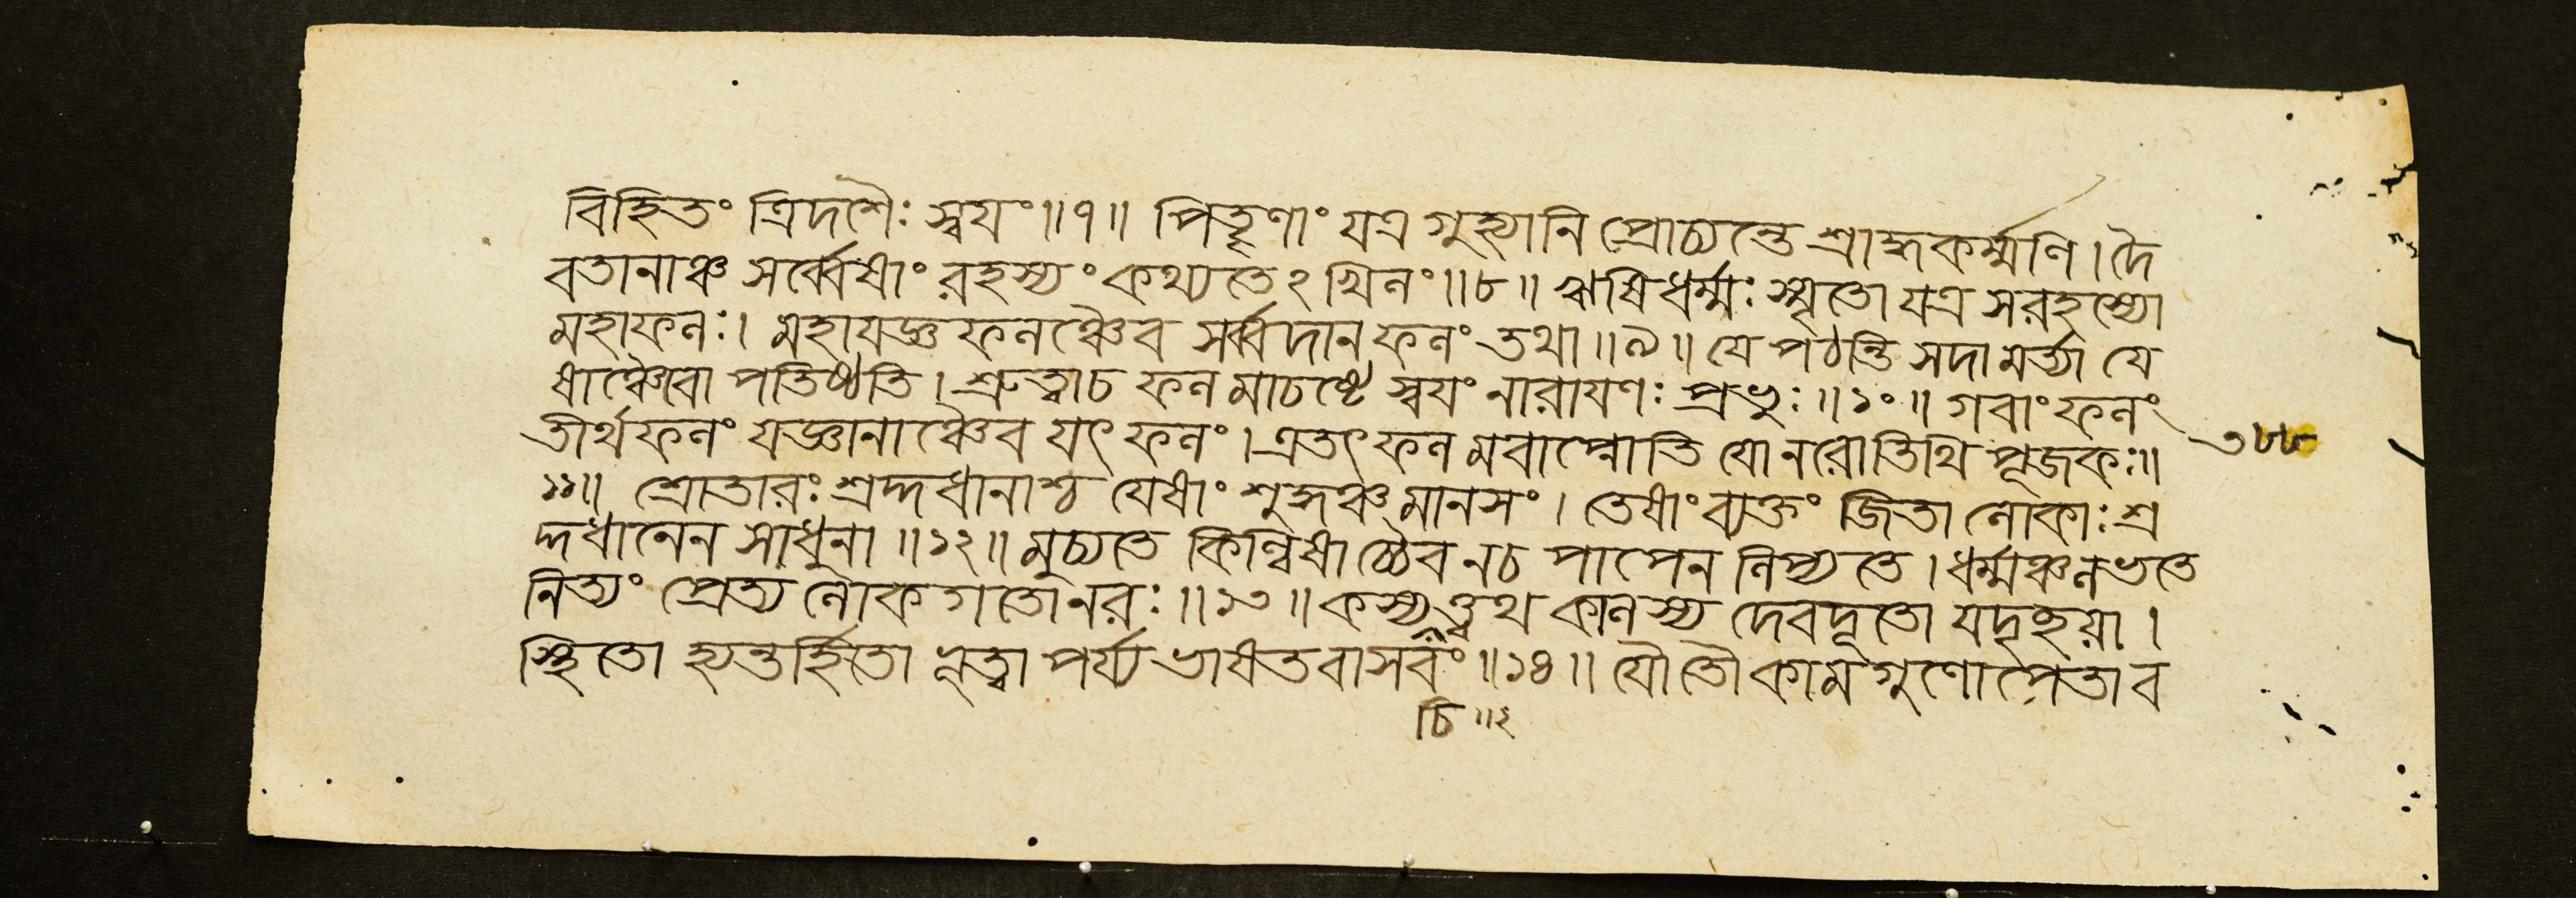 বিহিতং ত্রিদশৈঃ স্বযং॥৭॥ পিতৄণাং যত্র গুহ্যানি প্রোচ্যন্তে শ্রাদ্ধকর্ম্মণি। দৈ
বতানাঞ্চ সর্ব্বেষাং রহস্যং কথ্যতেঽখিলং॥৮॥ ঋষিধর্ম্মঃ স্মৃতো যত্র সরহস্যো
মহাফলঃ। মহাযজ্ঞফলঞ্চৈব সর্ব্বদানফলং তথা॥৯॥ যে পঠন্তি সদা মর্ত্যা যে
ষাঞ্চৈবোপতিষ্ঠতি। শ্রুত্বাচ ফলমাচষ্টে স্বযং নারাযণঃ প্রভুঃ॥১০॥ গবাং ফলং
তীর্থফলং যজ্ঞানাঞ্চৈব যৎ ফলং। এতৎ ফলমবাপ্নোতি যো নরোতিথিপূজকঃ॥
৩৮৮
১১॥ শ্রোতারঃ শ্রদ্দধানাশ্চ যেষাং শুদ্ধঞ্চ মানসং। তেষাং ব্যক্তং জিতা লোকাঃ শ্র
দ্দধানেন সাধুনা॥১২॥ মুচ্যতে কিল্বিষাচ্চৈব নচ পাপেন লিপ্যতে। ধর্ম্মঞ্চ লভতে
নিত্যং প্রেত্য লোকগতো নরঃ॥১৩॥ কস্যত্ত্বথ কালস্য দেবদূতো যদৃচ্ছযা।
স্থিতো হ্যন্তর্হিতো ভূত্বা পর্য্যভাষত বাসবং॥১৪॥ যৌ তৌ কামগুণোপেতাব
চি॥২